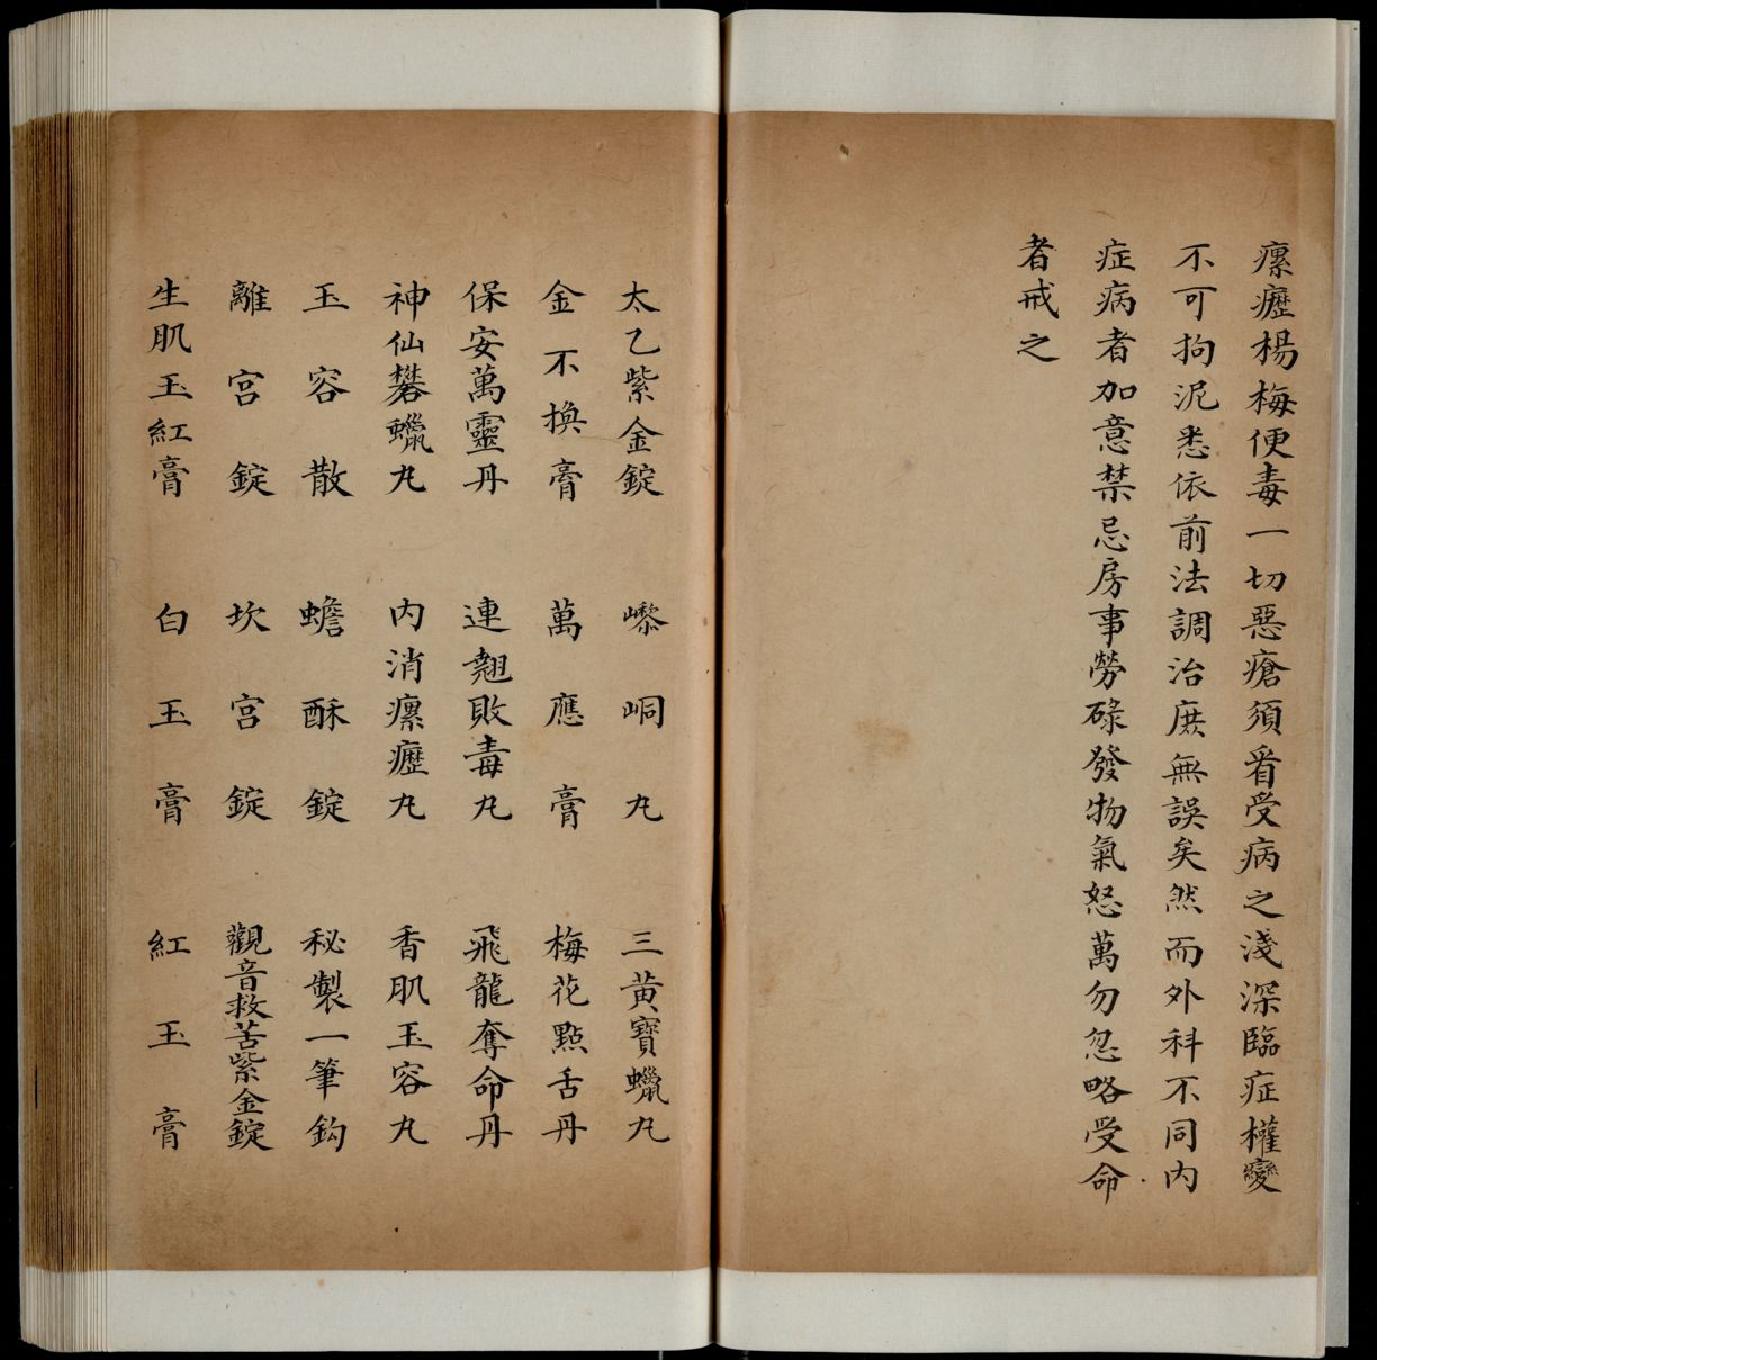 瘰癧楊梅便毒一切惡瘡須看受病之淺深臨症權變
不可拘泥悉依前法調治庶無誤矣然而外科不同内
症病者加意禁忌房事勞碌發物氣怒萬勿忽略受命
者戒之
太乙紫金錠 嚟峒丸 三黄寶蠟丸
金不換膏 萬應膏 梅花點舌丹
保安萬靈丹 連翹敗毒丸 飛龍奪命丹
神仙礬蠟丸 内消瘰癧丸 香肌玉容丸
玉容散 蟾酥錠 秘製一筆鈎
離宫錠 坎宫錠 觀音救苦紫金錠
生肌玉紅膏 白玉膏 紅玉膏